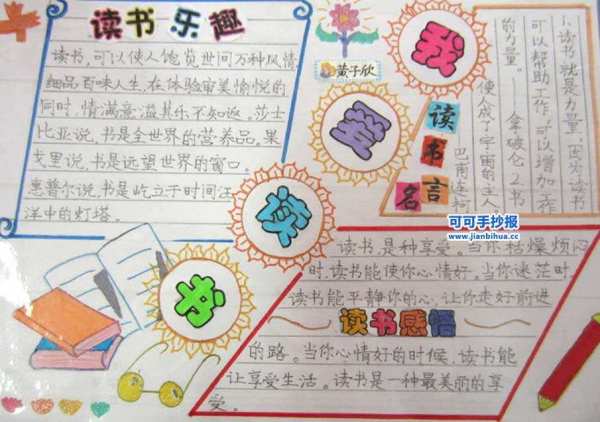 读书乐趣
读书，可以使人饱览世间万种风情，
细品百味人生，在体验审美愉悦的
同时，情满意溢其乐不知返。莎士
比亚说，书是全世界的营养品。果
戈里说，书是远望世界的窗口。
惠普尔说，书是屹立于时间汪
洋中的灯塔。
黄子欣
我
爱
读
书
读书名言
1、读书就是力量，因为读书
可以帮助工作，可以增加工作
的力量。
拿破仑 2、书
使人成了宇宙的主人
巴甫连柯
可可手抄报
www.jianbihua.cc
读书，是种享受。当你枯燥烦闷
时，读书能使你心情好。当你迷茫时
读书能平静你的心，让你走好前进
读书感悟
的路。当你心情好的时候，读书能
让享受生活。读书是一种最美丽的享
受。